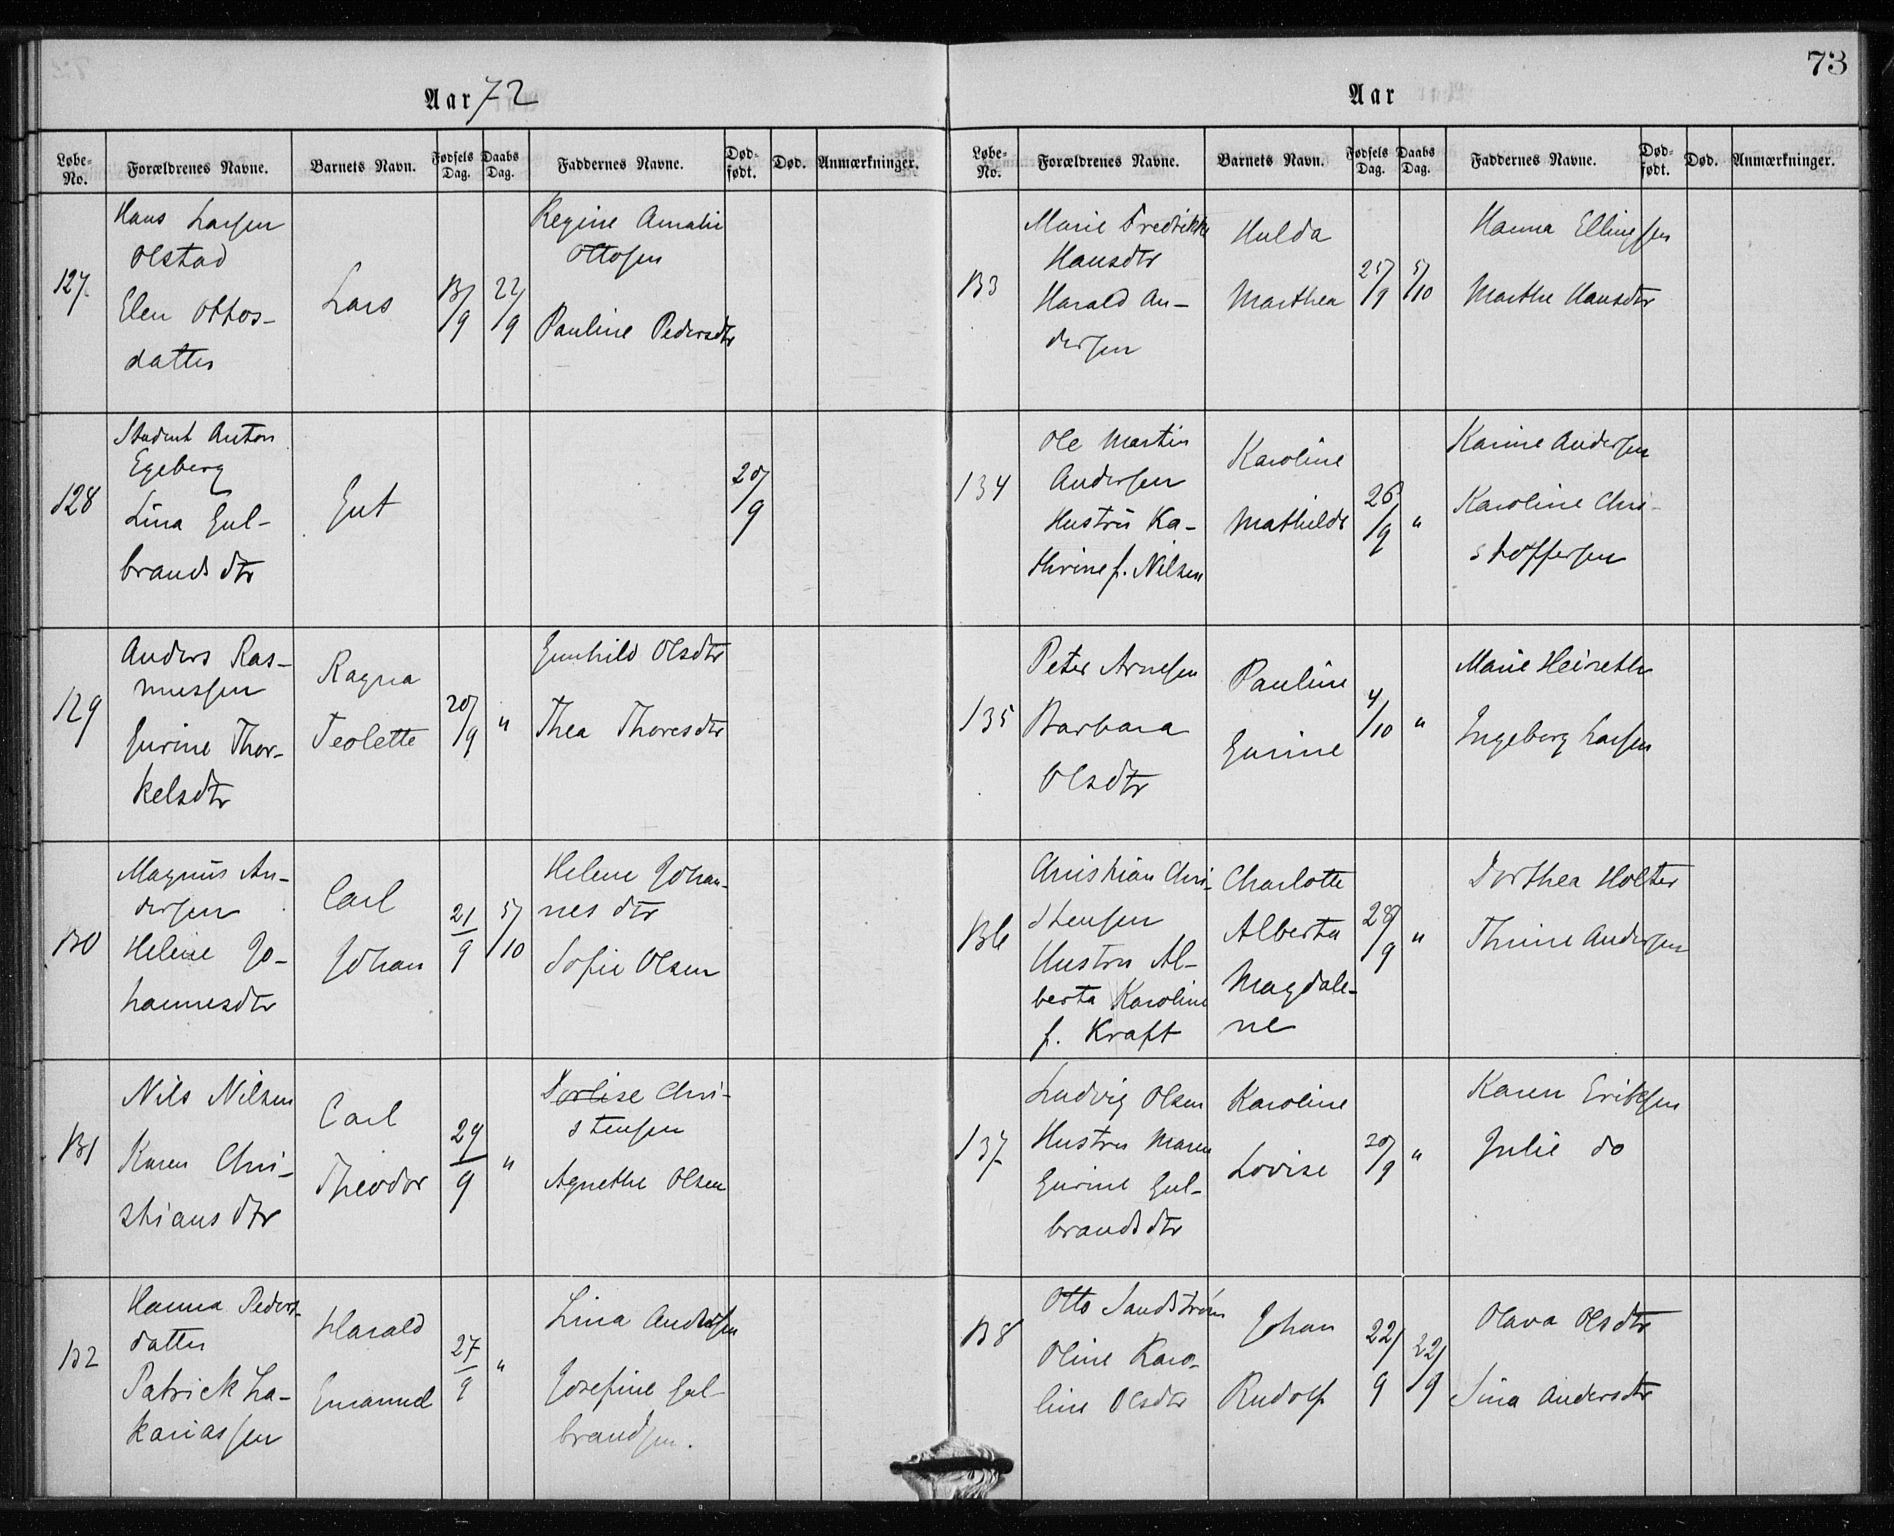 Aar 72
Løbe-No. Forældrenes Navne. Barnets Navn. Fødsels Dag. Daabs Dag. Faddernes Navne. Død-født. Død. Anmærkninger.
127.
Hans Larsen
Olstad
Elen Ottos-
datter
Lars
13/9
22/9
Regine Amalie
Ottosen
Pauline Pedersdtr
128
Student Anton
Egeberg
Lina Gul-
brandsdtr
Gut
20/9
129
Anders Ras-
mussen
Gurine Thor-
kelsdtr
Ragna
Teolette
20/9
"
Gunhild Olsdtr
Thea Thoresdtr
130
Magnus An-
dersen
Helene Jo-
hannesdtr
Carl
Johan
21/9
5/10
Helene Johan-
nesdtr
Sofie Olsen
131
Nils Nilsen
Karen Chri-
stiansdtr
Carl
Theodor
29/9
"
Dorlise Chri-
stensen
Agnethe Olsen
132
Hanna Peders-
datter
Patrick Za-
kariassen
Harald
Emanuel
27/9
"
Lina Andersen
Josefine Gul-
brandsen.
73
Aar
Løbe-No. Forældrenes Navne. Barnets Navn. Fødsels Dag. Daabs Dag. Faddernes Navne. Død-født. Død. Anmærkninger.
133
Marie Fredrikke
Hansdtr
Harald An-
dersen
Hulda
Marthea
25/9
5/10
Hanna Ellingsen
Marthe Hansdtr
134
Ole Martin
Andersen
Hustru Ka-
thrine f. Nilsen
Karoline
Mathilde
26/9
"
Karine Andersen
Karoline Chri-
stoffersen
135
Peter Arnesen
Barbara
Olsdtr
Pauline
Gurine
4/10
"
Marie Heireth
Ingeborg Larsen
136
Christian Chri-
stensen
Hustru Al-
berta Karoline
f. Kraft
Charlotte
Alberta
Magdale-
ne
28/9
"
Dorthea Holter
Thrine Andersen
137
Ludvig Olsen
Hustru Maren
Gurine Gul-
brandsdtr
Karoline
Lovise
20/9
"
Karen Eriksen
Julie do
138
Otto Sandstrøm
Oline Karo-
line Olsdtr
Johan
Rudolf
22/9
22/9
Olava Olsdtr
Sina Andersdtr